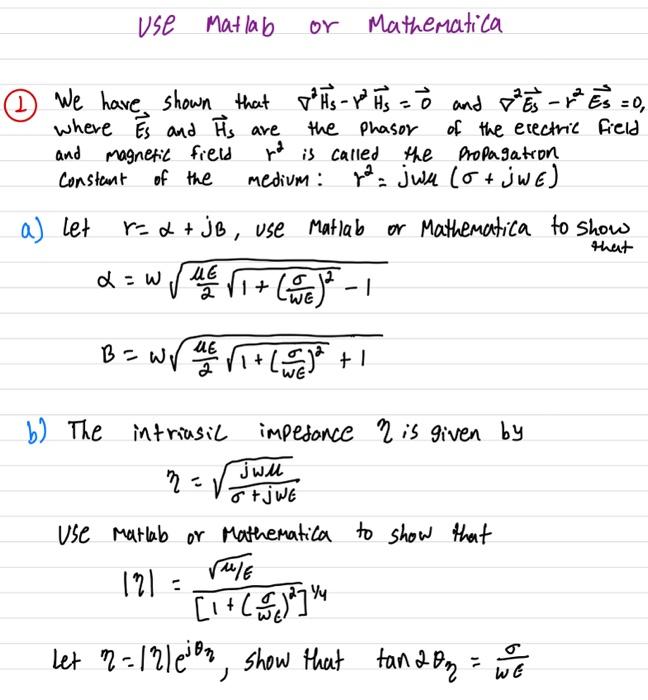 USE Matlab or Mathematica
① We have shown that ∇²H⃗s - r² H⃗s = 0⃗ and ∇²E⃗s - r² E⃗s = 0,
where E⃗s and H⃗s are the phasor of the electric field
and magnetic field r² is called the propagation
Constant of the medium: r² = jwμ (σ + jwϵ)
a) Let r = α + jB, use Matlab or Mathematica to show
that
α = w √(μϵ/2 √(1 + (σ/wϵ)²) - 1)
B = w √(μϵ/2 √(1 + (σ/wϵ)²) + 1)
b) The intriusil impedance η is given by
η = √(jwμ/(σ + jwϵ))
Use Matlab or Mathematica to show that
|η| = √(μ/ϵ) / [1 + (σ/wϵ)²]^1/4
Let η = |η|e^jθη, show that tan 2θη = σ/wϵ